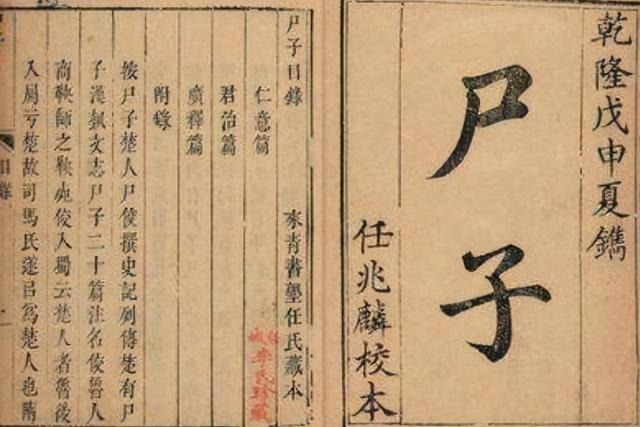 乾隆戊申夏鐫
尸子
任兆麟校本
尸子目錄
心齋書塾任氏藏本
仁意篇
君治篇
廣釋篇
附錄
按尸子楚人尸佼撰史記列傳楚有尸
子漢藝文志尸子二十篇注名佼魯人
商鞅師之鞅死佼入蜀云楚人者魯後
入屬于楚故司馬氏遂以為楚人也隋
李氏珍藏
目錄